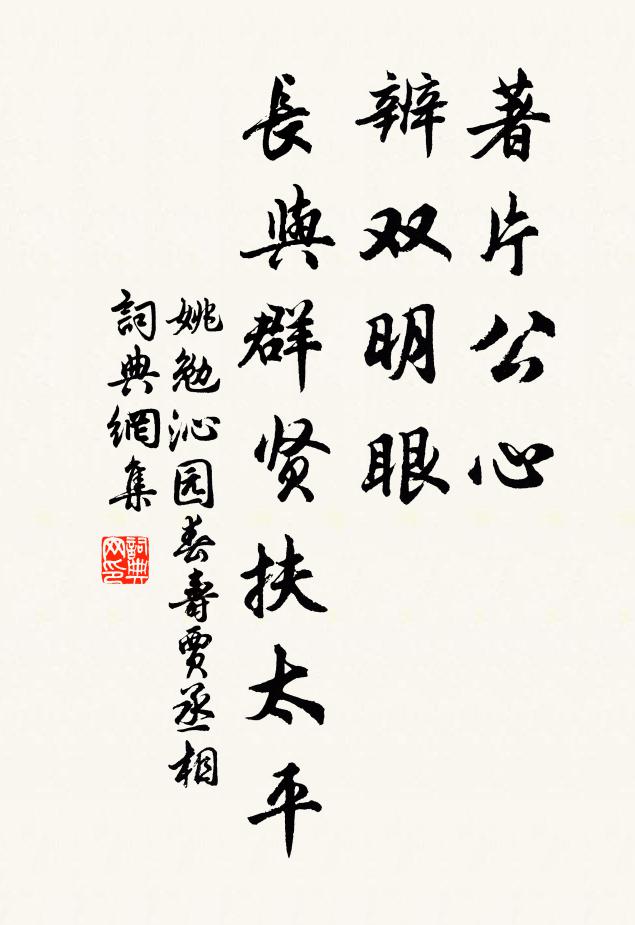 著片公心
辨双明眼
長與群贤扶太平
姚勉沁园春壽賈丞相
詞典網集
詞典網印